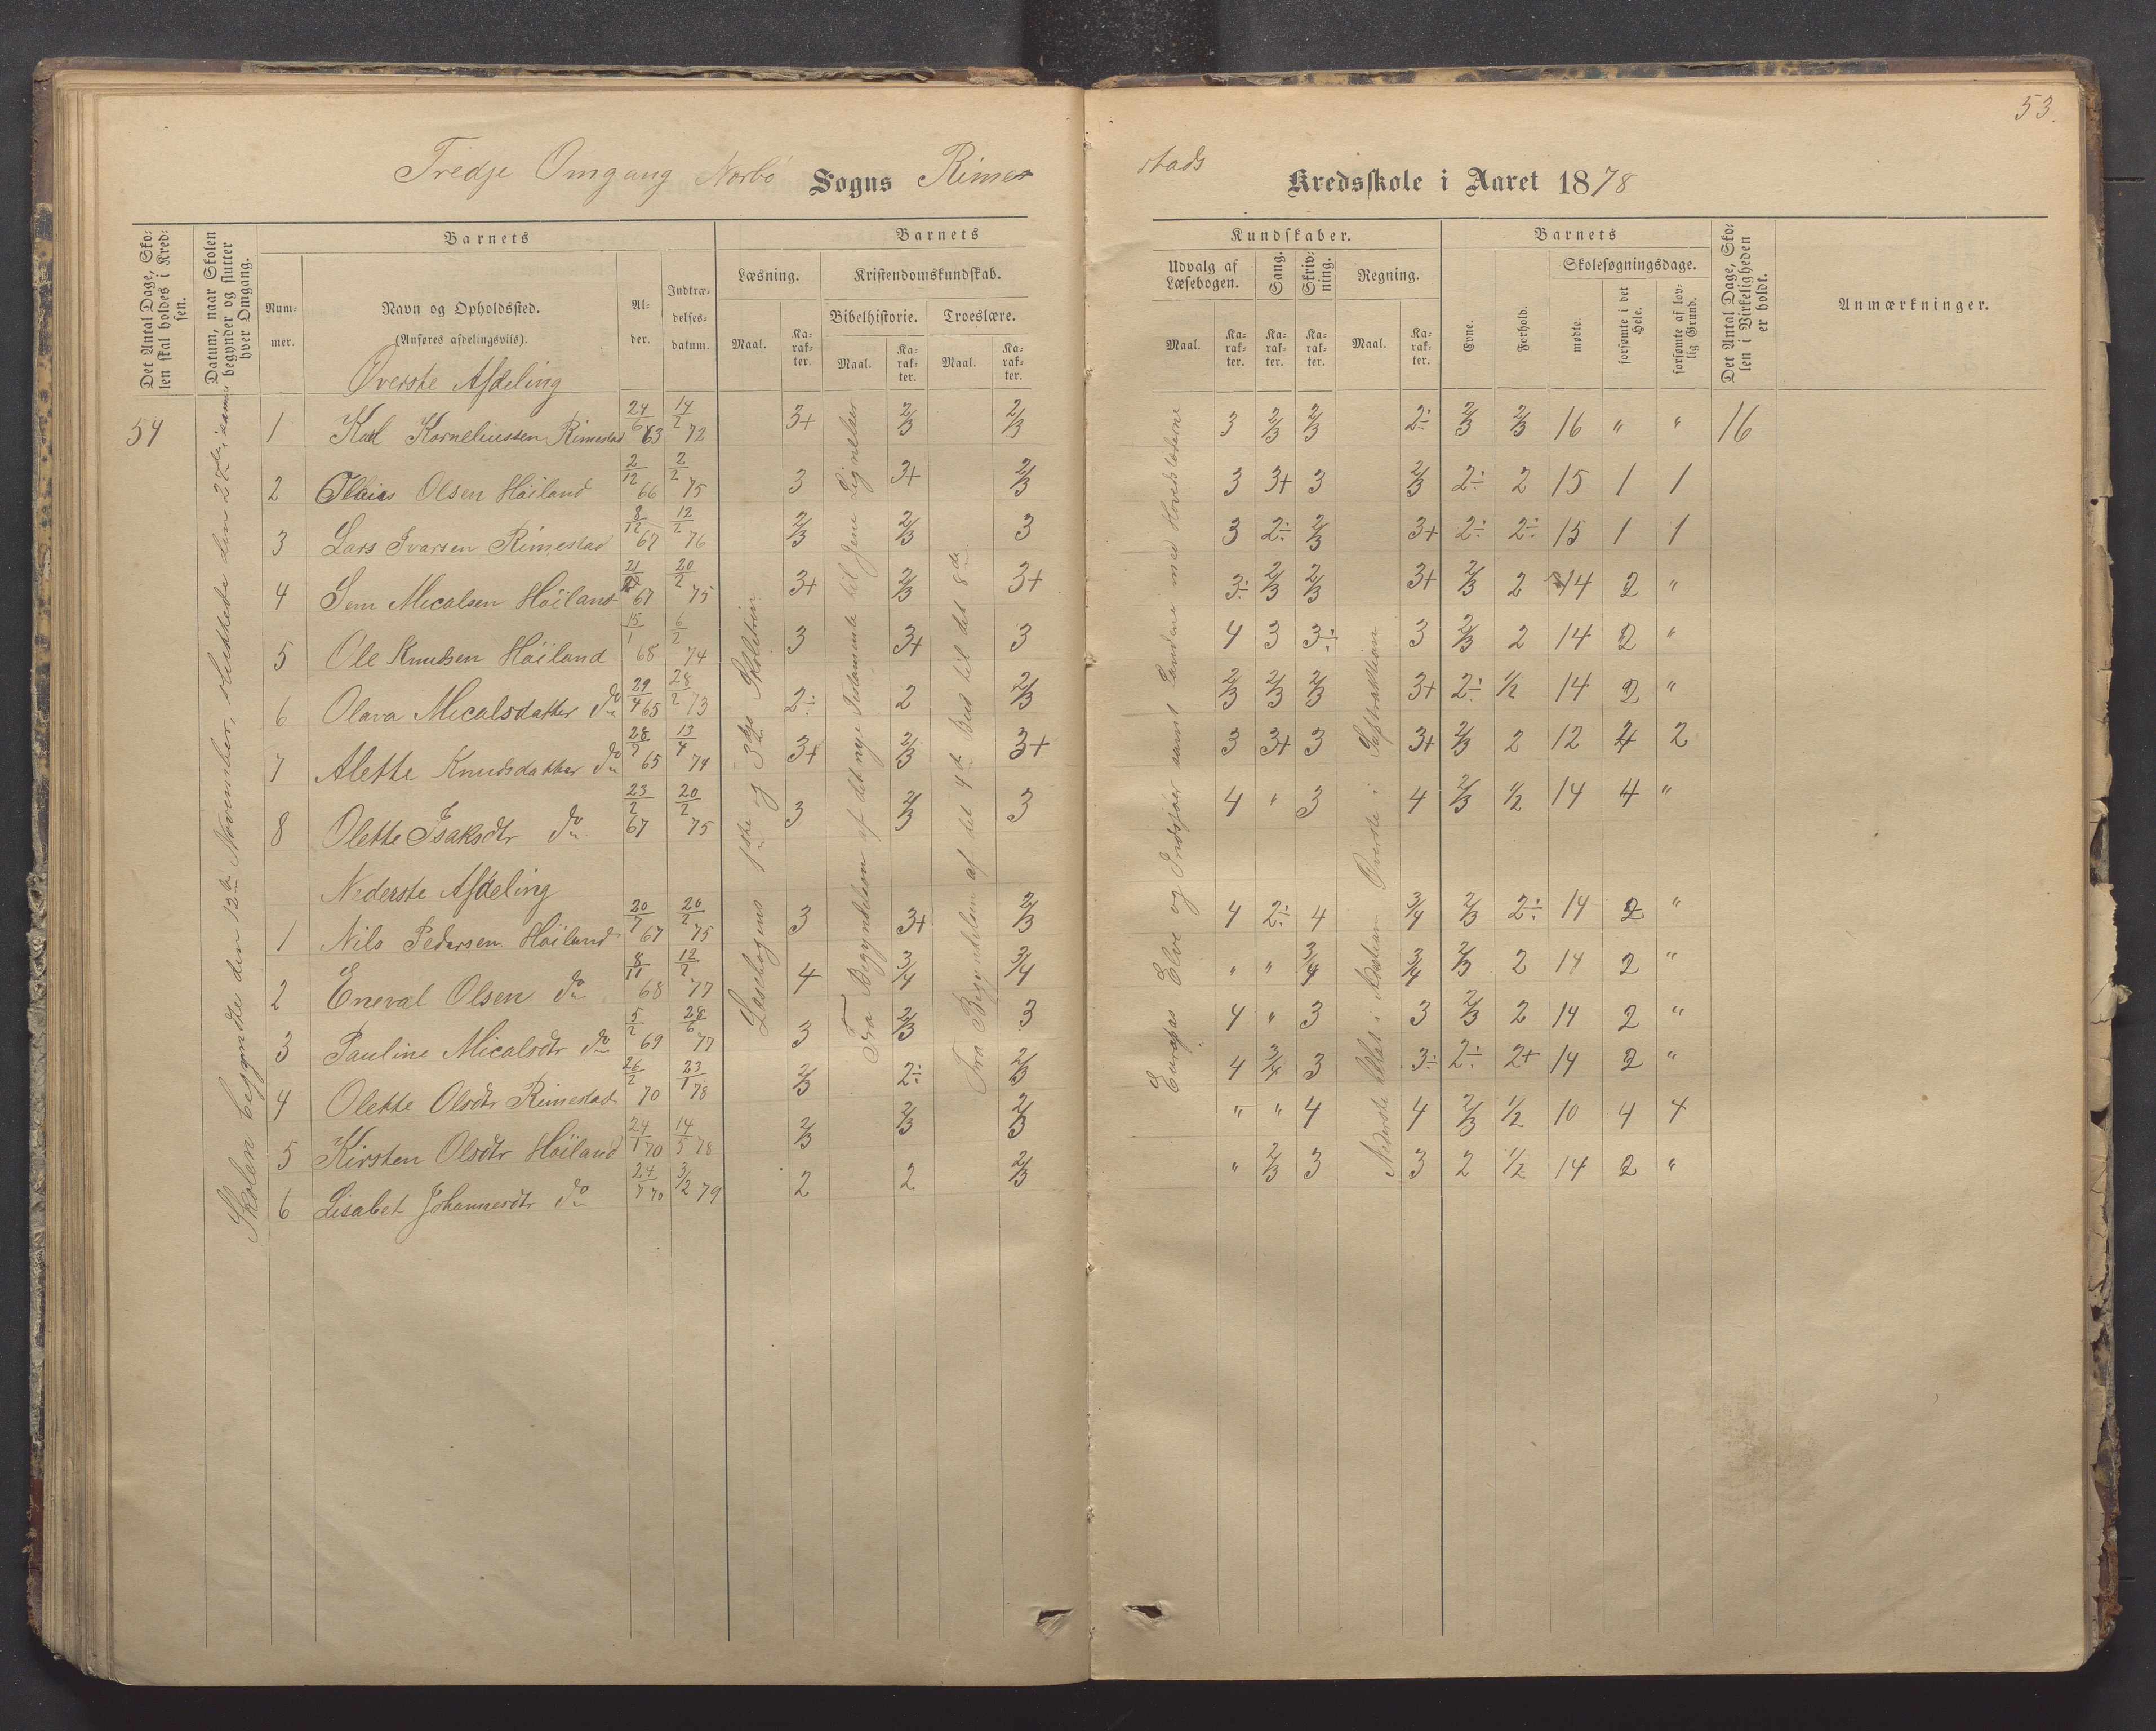 53.
Tredje Omgang Norbö Sogns Rime-
stads Kredsskole i Aaret 1878
Det Antal Dage, Sko-
len skal holdes i Kred-
sen.
Datum, naar Skolen
begynder og slutter
hver Omgang.
Barnets
Num-
mer.
Navn og Opholdssted.
(Anføres afdelingsviis).
Al-
der.
Indtræ-
delses-
datum.
Barnets
Læsning.
Maal.
Ka-
rak-
ter.
Kristendomskundskab.
Bibelhistorie.
Maal.
Ka-
rak-
ter.
Troeslære.
Maal.
Ka-
rak-
ter.
Kundskaber.
Udvalg af
Læsebogen.
Maal.
Ka-
rak-
ter.
Sang.
Ka-
rak-
ter.
Skriv-
ning.
Ka-
rak-
ter.
Regning.
Maal.
Ka-
rak-
ter.
Barnets
Evne.
Forhold.
Skolesøgningsdage.
mødte.
forsømte i det
Hele.
forsømte af lov-
lig Grund.
Det Antal Dage, Sko-
len i Virkeligheden
er holdt.
Anmærkninger.
Skolen begyndte den 12te November, sluttede den
Læsebogens 1ste og 3die Skoletrin
Fra Begyndelsen af det nye Testamente til Jesu Lignelser
Fra Begyndelsen af det 4de Bud til det 8de
Europas Elve og Indsjøer samt Landene med Hovedstæderne
Øverste i Subtraktion
Nederste i Addition
Øverste Afdeling
54 1 Karl Korneliussen Rimestad 24/6 63 14/2 72 3+ 2/3 2/3 3 2/3 2/3 2÷ 2/3 2/3 16 " " 16
2 Olsen Höiland 2/12 66 2/2 75 3 3+ 2/3 3 3+ 3 2/3 2÷ 2 15 1 1
3 Lars Ivarsen Rimestad 8/12 67 12/2 76 2/3 2/3 3 3 2÷ 2/3 3+ 2÷ 2÷ 15 1 1
4 Sem Micalsen Höiland 67 20/2 75 3+ 2/3 3+ 3÷ 2/3 2/3 3+ 2/3 2 14 2 "
5 Ole Knudsen Höiland 15/1 65 6/2 74 3 3+ 3 4 3 3÷ 3 2/3 2 14 2 "
6 Olava Micalsdatter do 29/4 65 28/2 73 2÷ 2 2/3 2/3 2/3 2/3 3+ 2÷ 1/2 14 2 "
7 Alette Knudsdatter do 28/7 65 13/4 74 3+ 2/3 3+ 3 3+ 3 3+ 2/3 2 12 4 2
8 Olette Isaksdtr do 23/2 67 20/2 75 3 2/3 3 4 " 3 4 2/3 1/2 14 4 "
Nederste Afdeling
1 Nils Pedersen Höiland 20/7 67 20/2 75 3 3+ 2/3 4 2÷ 4 3/4 2/3 2÷ 14 2 "
2 Eneval Olsen do 8/11 68 12/2 77 4 3/4 3/4 " " 3/4 3/4 2/3 2 14 2 "
3 Pauline Micalsdtr do 5/2 69 28/6 77 3 2/3 3 4 " 3 3 2/3 2 14 2 "
4 Olette Olsdtr Rimestad 26/2 70 23/1 78 2/3 2÷ 2/3 4 3/4 3 3÷ 2÷ 2+ 14 2 "
5 Kirsten Olsdtr Höiland 24/1 70 14/5 78 2/3 2/3 2/3 " " 4 4 2/3 1/2 10 4 4
6 Lisabet Johannesdtr do 24/7 70 3/2 79 2 2 2/3 " 2/3 3 3 2 1/2 14 2 "